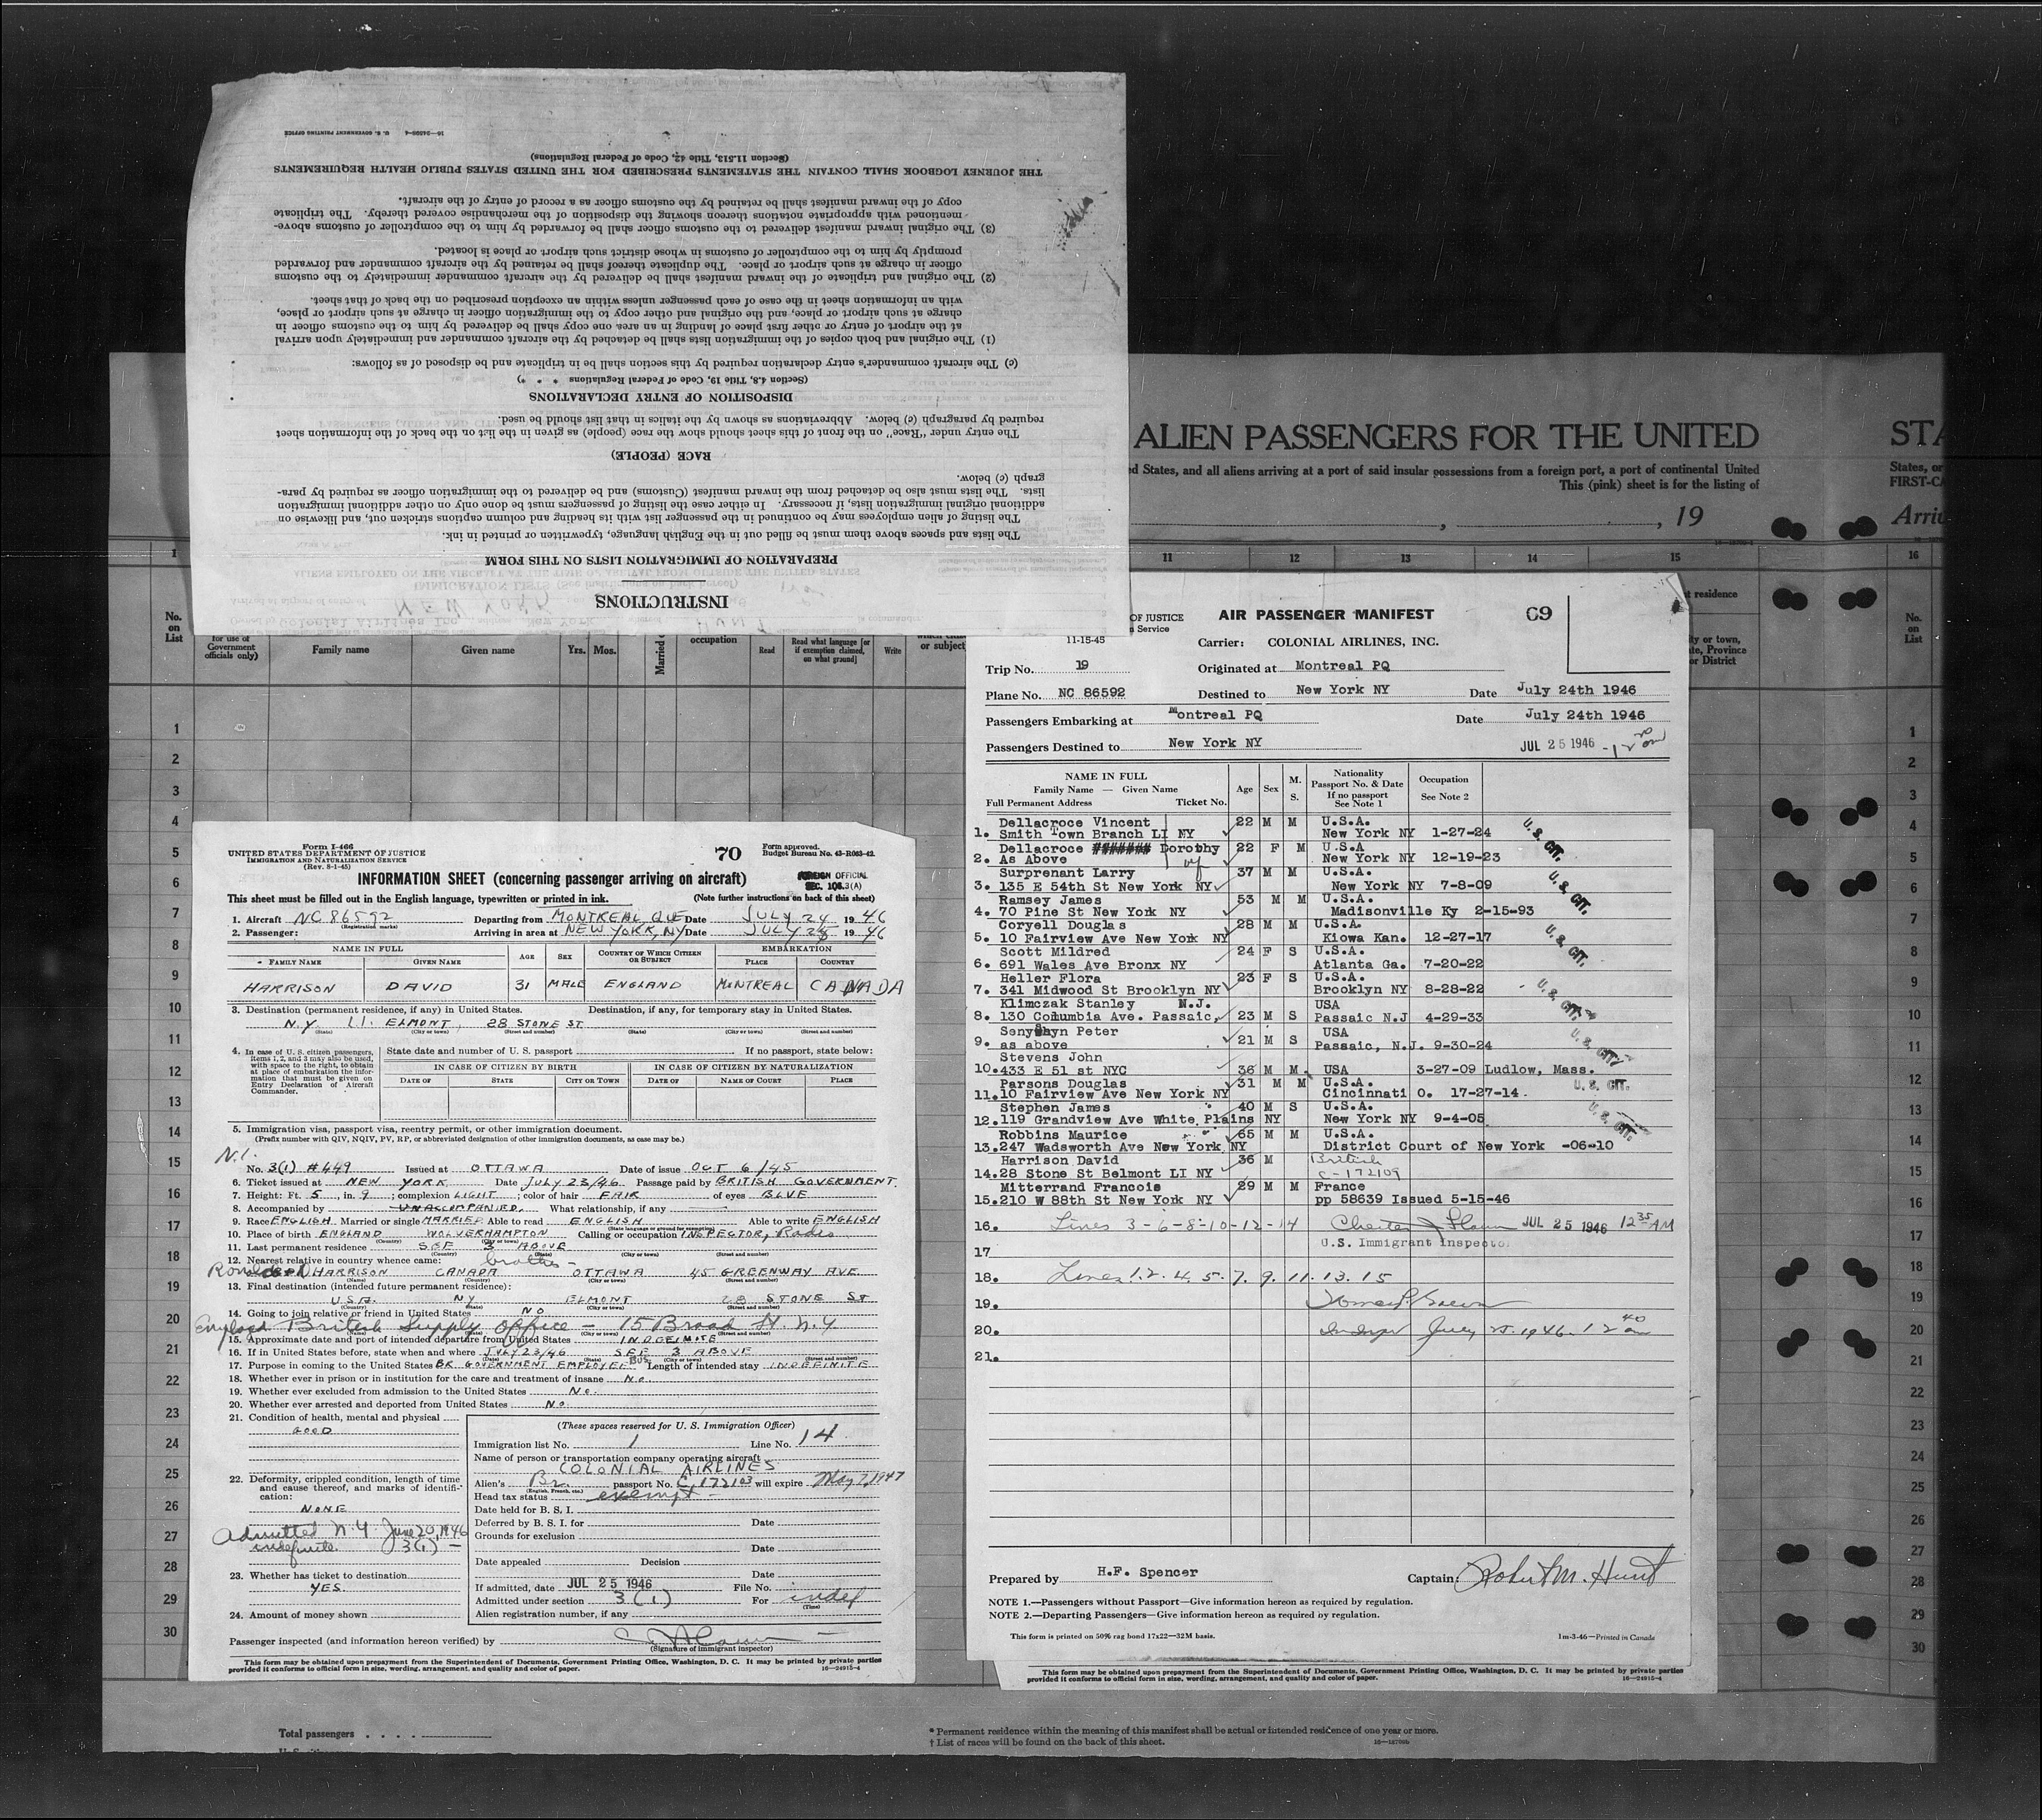 16—24598-4 U. S. GOVERNMENT PRINTING OFFICE
(Section 11.513, Title 42, Code of Federal Regulations)
THE JOURNEY LOGBOOK SHALL CONTAIN THE STATEMENTS PRESCRIBED FOR THE UNITED STATES PUBLIC HEALTH REQUIREMENTS
copy of the inward manifest shall be retained by the customs officer as a record of entry of the aircraft.
mentioned with appropriate notations thereon showing the disposition of the merchandise covered thereby. The triplicate
(3) The original inward manifest delivered to the customs officer shall be forwarded by him to the comptroller of customs above-
promptly by him to the comptroller of customs in whose district such airport or place is located.
officer in charge at such airport or place. The duplicate thereof shall be retained by the aircraft commander and forwarded
(2) The original and triplicate of the inward manifest shall be delivered by the aircraft commander immediately to the customs
with an information sheet in the case of each passenger unless within an exception prescribed on the back of that sheet.
charge at such airport or place, and the original and other copy to the immigration officer in charge at such airport or place,
at the airport of entry or other first place of landing in an area one copy shall be delivered by him to the customs officer in
(1) The original and both copies of the immigration lists shall be detached by the aircraft commander and immediately upon arrival
(c) The aircraft commander's entry declaration required by this section shall be in triplicate and be disposed of as follows:
(Section 4.8, Title 19, Code of Federal Regulations * * *)
DISPOSITION OF ENTRY DECLARATIONS
required by paragraph (c) below. Abbreviations as shown by the italics in that list should be used.
The entry under "Race" on the front of this sheet should show the race (people) as given in the list on the back of the information sheet
RACE (PEOPLE)
graph (c) below.
lists. The lists must also be detached from the inward manifest (Customs) and be delivered to the immigration officer as required by para-
additional original immigration lists, if necessary. In either case the listing of passengers must be done only on other additional immigration
The listing of alien employees may be continued in the passenger list with its heading and column captions stricken out, and likewise on
The lists and spaces above them must be filled out in the English language, typewritten or printed in ink.
PREPARATION OF IMMIGRATION LISTS ON THIS FORM
INSTRUCTIONS
ALIEN PASSENGERS FOR THE UNITED STA
ed States, and all aliens arriving at a port of said insular possessions from a foreign port, a port of continental United States, or
This (pink) sheet is for the listing of FIRST-CA
, , 19 Arriv
1 11 12 13 14 15 16
No. on List
for use of Government officials only)
Family name Given name Yrs. Mos. Married occupation Read Read what language [or if exemption claimed, on what ground] Write
or subject
residence
ity or town, te, Province or District
No. on List
1
2
3
4
5
6
7
8
9
10
11
12
13
14
15
16
17
18
19
20
21
22
23
24
25
26
27
28
29
30
Form I-466
UNITED STATES DEPARTMENT OF JUSTICE
IMMIGRATION AND NATURALIZATION SERVICE
(Rev. 8-1-45)
70
Form approved.
Budget Bureau No. 43-R063-42.
FOREIGN OFFICIAL
SEC. 103.3(A)
INFORMATION SHEET (concerning passenger arriving on aircraft)
This sheet must be filled out in the English language, typewritten or printed in ink. (Note further instructions on back of this sheet)
1. Aircraft NC 86592 Departing from MONTREAL, QUE Date JULY 24 1946
(Registration marks)
2. Passenger: Arriving in area at NEW YORK, NY Date JULY 25 1946
NAME IN FULL AGE SEX COUNTRY OF WHICH CITIZEN OR SUBJECT EMBARKATION
FAMILY NAME GIVEN NAME PLACE COUNTRY
HARRISON DAVID 31 MALE ENGLAND MONTREAL CANADA
3. Destination (permanent residence, if any) in United States. Destination, if any, for temporary stay in United States.
N.Y. L.I. ELMONT, 28 STONE ST
(State) (City or town) (Street and number) (State) (City or town) (Street and number)
4. In case of U. S. citizen passengers, items 1, 2, and 3 may also be used, with space to the right, to obtain at place of embarkation the information that must be given on Entry Declaration of Aircraft Commander.
State date and number of U. S. passport If no passport, state below:
IN CASE OF CITIZEN BY BIRTH IN CASE OF CITIZEN BY NATURALIZATION
DATE OF STATE CITY OR TOWN DATE OF NAME OF COURT PLACE
5. Immigration visa, passport visa, reentry permit, or other immigration document.
(Prefix number with QIV, NQIV, PV, RP, or abbreviated designation of other immigration documents, as case may be.)
N.I.
No. 3(1) #449 Issued at OTTAWA Date of issue OCT 6/45
6. Ticket issued at NEW YORK Date JULY 23/46 Passage paid by BRITISH GOVERNMENT
7. Height: Ft. 5, in. 9; complexion LIGHT; color of hair FAIR of eyes BLUE
8. Accompanied by UNACCOMPANIED. What relationship, if any
9. Race ENGLISH Married or single MARRIED Able to read ENGLISH Able to write ENGLISH
(State language or ground for exemption)
10. Place of birth ENGLAND WOLVERHAMPTON Calling or occupation INSPECTOR, Radio
(Country) (City or town)
11. Last permanent residence SEE 3 ABOVE
(Country) (State) (City or town) (Street and number)
12. Nearest relative in country whence came: brother -
Ronald HARRISON CANADA OTTAWA 45 GREENWAY AVE
(Name) (Country) (City or town) (Street and number)
13. Final destination (intended future permanent residence):
U.S.A. NY ELMONT 28 STONE ST
(Country) (State) (City or town) (Street and number)
14. Going to join relative or friend in United States NO
Employed British Supply Office - 15 Broad St. N.Y.
(Name) (City or town) (Street and number)
15. Approximate date and port of intended departure from United States INDEFINITE
16. If in United States before, state when and where JULY 23/46 SEE 3 ABOVE
(Date) (State) (City or town) (Street and number)
17. Purpose in coming to the United States BR GOVERNMENT EMPLOYEE BUS. Length of intended stay INDEFINITE
18. Whether ever in prison or in institution for the care and treatment of insane No.
19. Whether ever excluded from admission to the United States No.
20. Whether ever arrested and deported from United States No.
21. Condition of health, mental and physical
GOOD
22. Deformity, crippled condition, length of time and cause thereof, and marks of identification:
NONE
Admitted N.Y. June 20, 1946
indefinite. 3(1) -
23. Whether has ticket to destination
YES
24. Amount of money shown
(These spaces reserved for U. S. Immigration Officer)
Immigration list No. 1 Line No. 14
Name of person or transportation company operating aircraft
COLONIAL AIRLINES
Alien's Br. passport No. C 172103 will expire May 7, 1947
(English, French, etc.)
Head tax status exempt -
Date held for B. S. I.
Deferred by B. S. I. for Date
Grounds for exclusion
Date
Date appealed Decision
Date
If admitted, date JUL 25 1946 File No.
Admitted under section 3(1) For indef
(Time)
Alien registration number, if any
Passenger inspected (and information hereon verified) by
(Signature of immigrant inspector)
This form may be obtained upon prepayment from the Superintendent of Documents, Government Printing Office, Washington, D. C. It may be printed by private parties
provided it conforms to official form in size, wording, arrangement, and quality and color of paper. 16—24915-4
OF JUSTICE
n Service
11-15-45
AIR PASSENGER MANIFEST
69
Carrier: COLONIAL AIRLINES, INC.
Trip No. 19 Originated at Montreal PQ
Plane No. NC 86592 Destined to New York NY Date July 24th 1946
Passengers Embarking at Montreal PQ Date July 24th 1946
Passengers Destined to New York NY JUL 25 1946
NAME IN FULL
Family Name — Given Name
Full Permanent Address Ticket No.
Age Sex M. S. Nationality Passport No. & Date If no passport See Note 1 Occupation See Note 2
Dellacroce Vincent 22 M M U.S.A.
1. Smith Town Branch LI NY New York NY 1-27-24
U.S. CIT.
Dellacroce ####### Dorothy 22 F M U.S.A
2. As Above New York NY 12-19-23
Surprenant Larry 37 M M U.S.A.
3. 135 E 54th St New York NY New York NY 7-8-09
U.S. CIT.
Ramsey James 53 M M U.S.A.
4. 70 Pine St New York NY Madisonville Ky 2-15-93
Coryell Douglas 28 M M U.S.A.
5. 10 Fairview Ave New York NY Kiowa Kan. 12-27-17
U.S. CIT.
Scott Mildred 24 F S U.S.A.
6. 691 Wales Ave Bronx NY Atlanta Ga. 7-20-22
Heller Flora 23 F S U.S.A.
7. 341 Midwood St Brooklyn NY Brooklyn NY 8-28-22
U.S. CIT.
Klimczak Stanley N.J. USA
8. 130 Columbia Ave. Passaic, 23 M S Passaic N.J 4-29-33
Senyshyn Peter USA
9. as above 21 M S Passaic, N.J. 9-30-24
U.S. CIT.
Stevens John
10. 433 E 51 st NYC 36 M M. USA 3-27-09 Ludlow, Mass.
Parsons Douglas 31 M M U.S.A.
11. 10 Fairview Ave New York NY Cincinnati O. 17-27-14.
U.S. CIT.
Stephen James 40 M S U.S.A.
12. 119 Grandview Ave White Plains NY New York NY 9-4-05
U.S. CIT.
Robbins Maurice 65 M M U.S.A.
13. 247 Wadsworth Ave New York NY District Court of New York -06-10
Harrison David 36 M British
14. 28 Stone St Belmont LI NY C-172109
Mitterrand Francois 29 M M France
15. 210 W 88th St New York NY pp 58639 Issued 5-15-46
16. Lines 3-6-8-10-12-14 JUL 25 1946 12 35 AM
U.S. Immigrant Inspector
17
18. Lines 1. 2. 4. 5. 7. 9. 11. 13. 15
19.
20. July 25. 1946. 12 40
21.
Prepared by H.F. Spencer Captain: Robert M. Hunt
NOTE 1.—Passengers without Passport—Give information hereon as required by regulation.
NOTE 2.—Departing Passengers—Give information hereon as required by regulation.
This form is printed on 50% rag bond 17x22—32M basis. 1m-3-46—Printed in Canada
This form may be obtained upon prepayment from the Superintendent of Documents, Government Printing Office, Washington, D. C. It may be printed by private parties
provided it conforms to official form in size, wording, arrangement, and quality and color of paper. 16—24915-4
Total passengers
* Permanent residence within the meaning of this manifest shall be actual or intended residence of one year or more.
† List of races will be found on the back of this sheet.